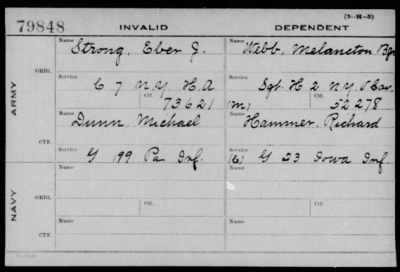 79848 INVALID DEPENDENT (3-H-3)
ARMY
ORIG.
Name Strong, Eber J.
Name Webb, Melancton
Service C 7 N.Y. H.A
Ctf. 73621
Service Sgt. H 2 N.Y. Cav.
(M) Ctf. 52278
CTF.
Name Dunn, Michael
Name Hammer, Richard
Service G 199 Pa Inf.
Service G 23 Iowa Inf.
NAVY
ORIG.
Name
Name
Service
Ctf.
Service
Ctf.
CTF.
Name
Name